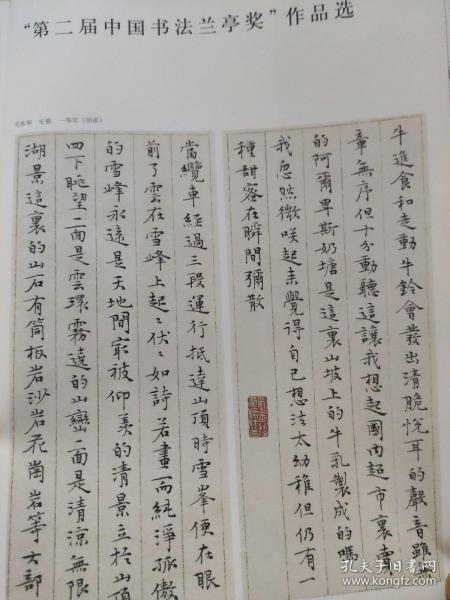 “第二届中国书法兰亭奖”作品选
安徽 一等奖（局部）
牛進食和走動牛鈴會發出清脆悅耳的聲音雖
章無序但十分動聽這讓我想起國內超市裏賣
的阿爾卑斯奶塘是這裏山坡上的牛乳製成的嗎
我忽然微咲起来覺得自己想法太幼稚但仍有一
種甜蜜在瞬間彌散
當纜車經過三段運行抵達山頂時雪峯便在眼
前了雲在雪峰上起々伏々如詩若畫而純淨孤傲
的雪峰永遠是天地間最被仰羨的清景立於山頂
四下眺望一面是雲環霧遶的山巒一面是清凉無限
湖景這裏的山石有筒板岩沙岩花崗岩等大部
孔夫子旧书网